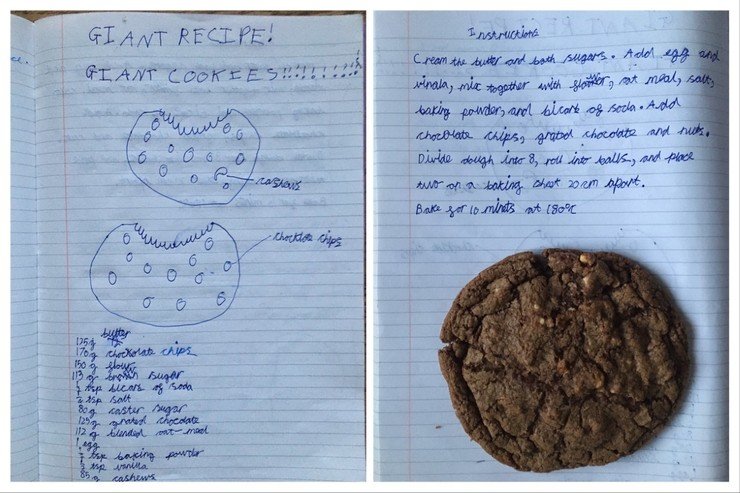 GIANT RECIPE!
GIANT COOKIES!!!!!!!!!
cashews
chocklate chips
butter
125g
170g chockolate chips
150g flour
113 g brown sugar
tsp bicarb of soda
tsp salt
80g caster sugar
125g grated chocolate
112 g blended oat-meal
1 egg
tsp baking powder
tsp vanilla
85g cashews
Instructions
Cream the butter and both sugars. Add egg and
vinala, mix together with flour, oat meal, salt,
baking powder, and bicarb of soda. Add
chocolate chips, grated chocolate and nuts.
Divide dough into 8, roll into balls, and place
two on a baking sheet 20 cm apart.
Bake for 10 minets at 180°c